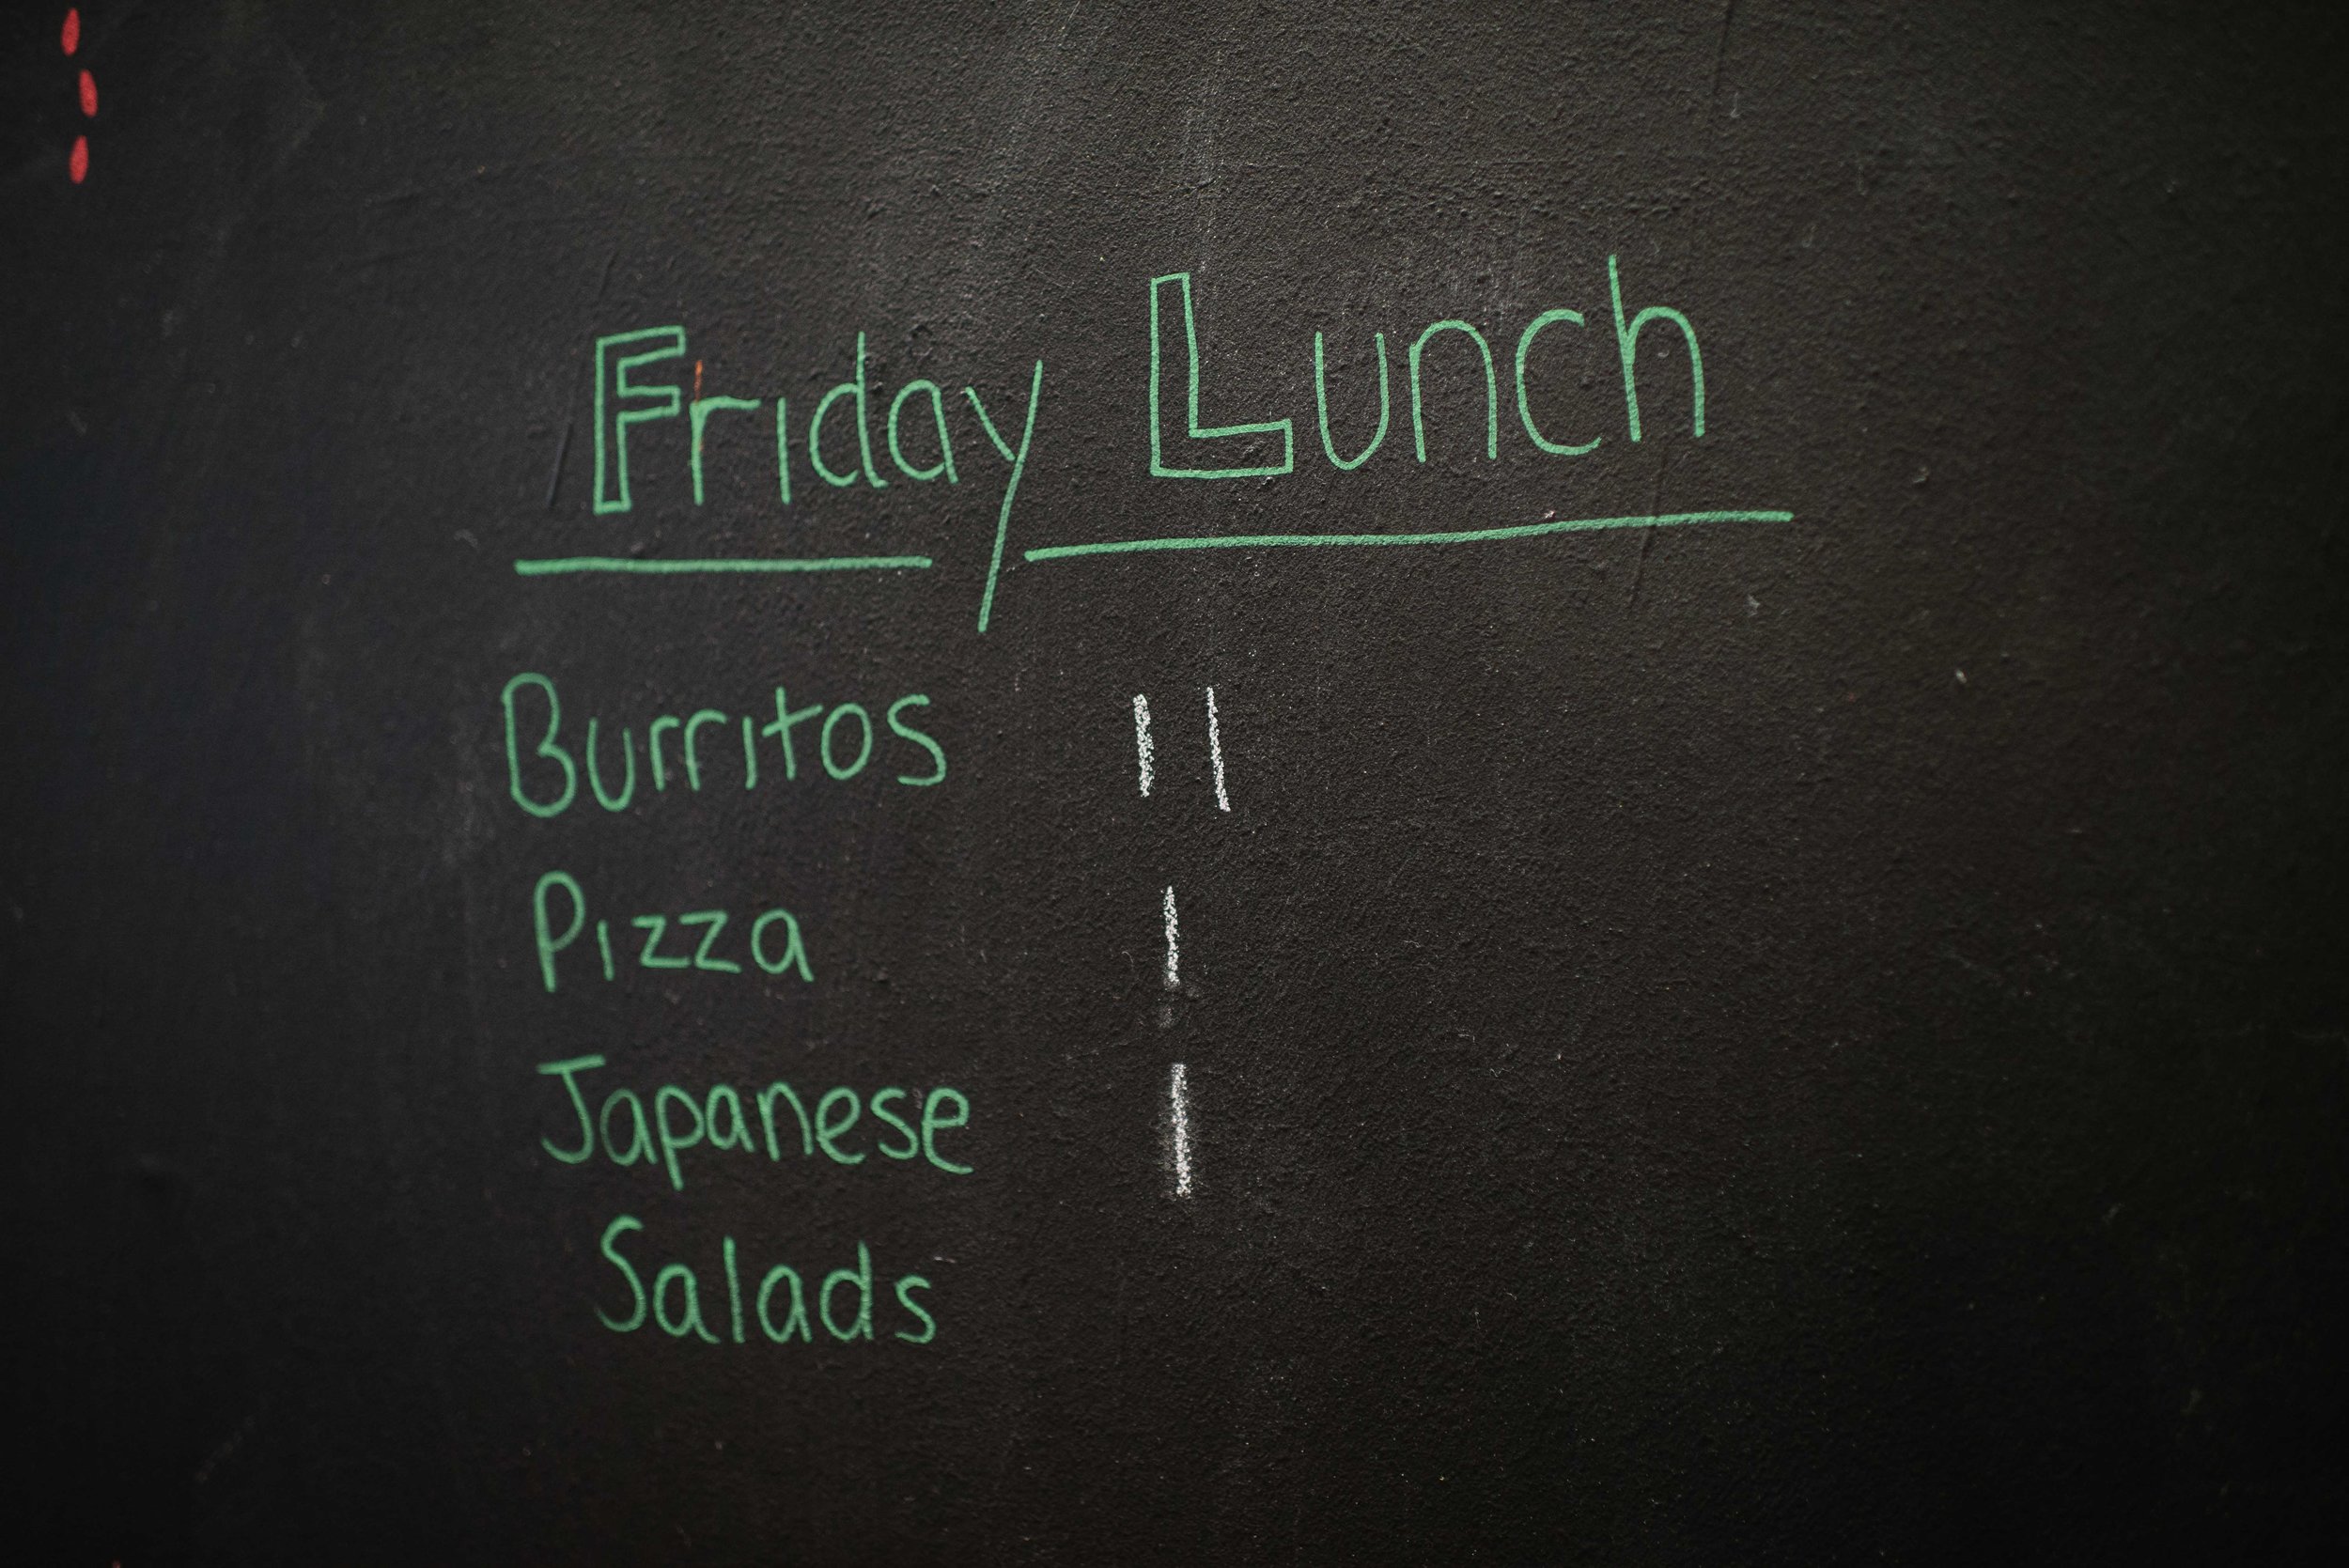 Friday Lunch
Burritos ||
Pizza |
Japanese |
Salads